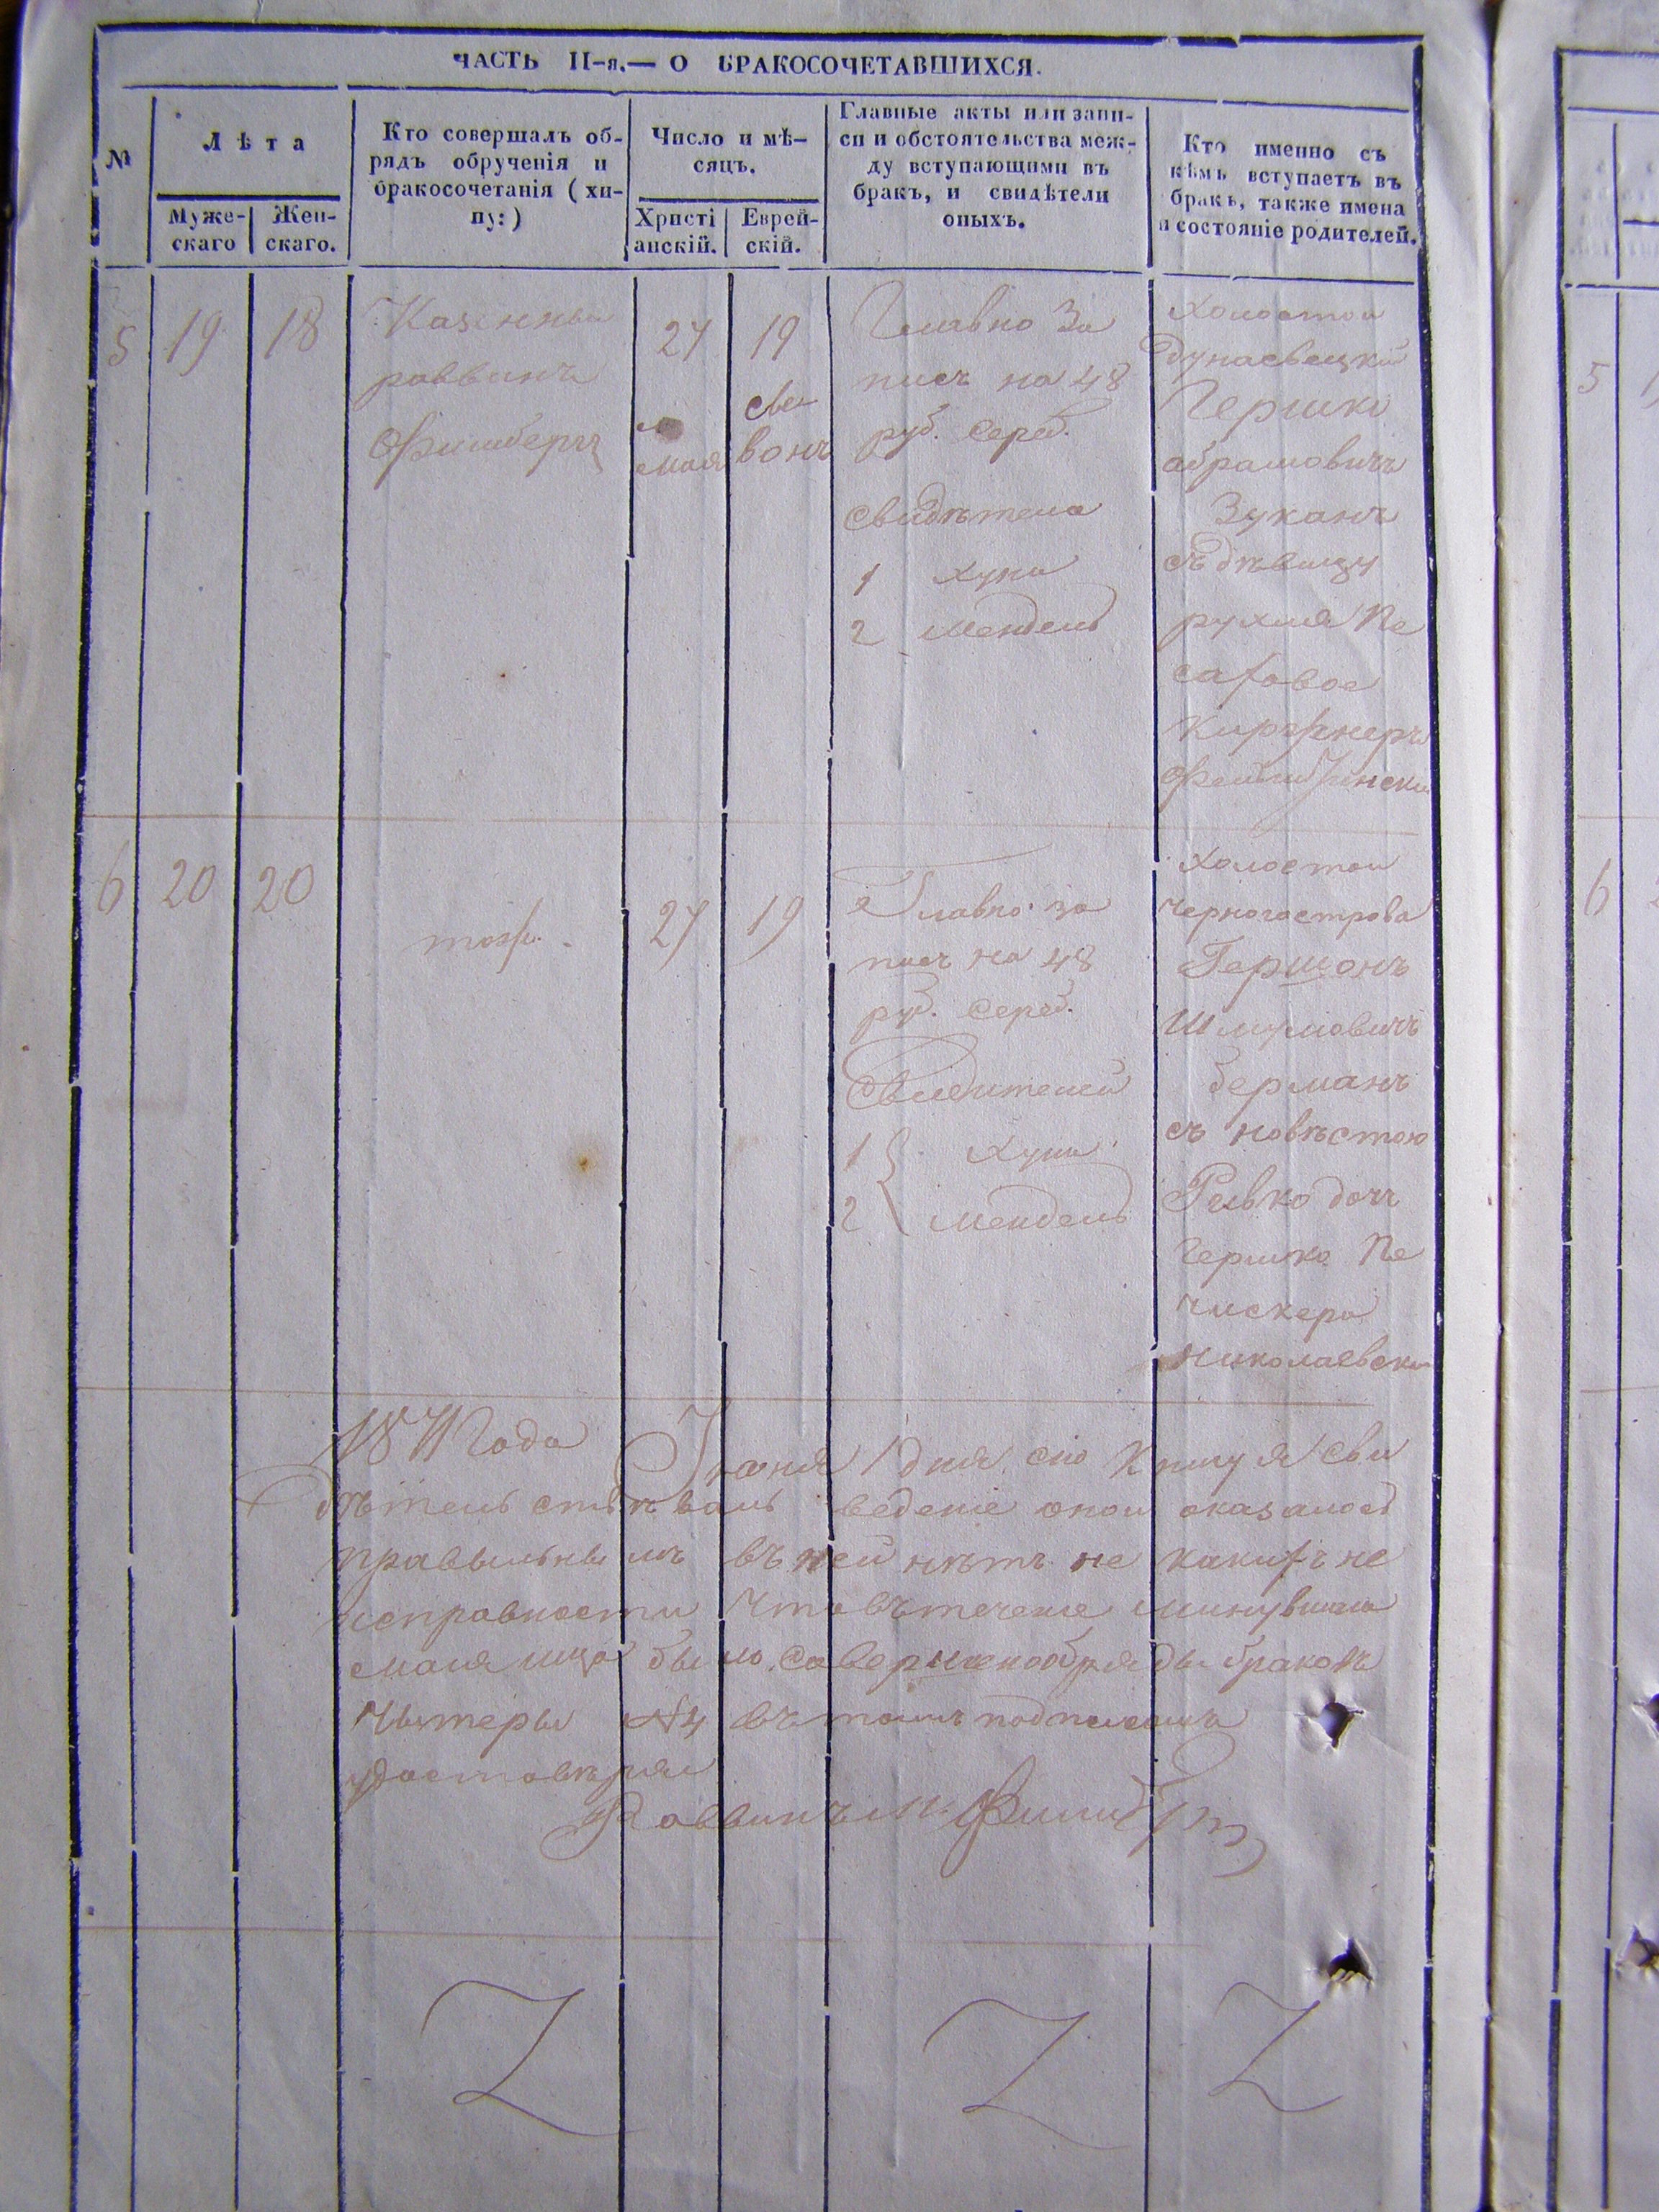 ЧАСТЬ II-я.— О БРАКОСОЧЕТАВШИХСЯ.
№
Лѣта
Муже-
скаго
Жен-
скаго.
Кто совершалъ об-
рядъ обрученія и
бракосочетанія (хи-
пу:)
Число и мѣ-
сяцъ.
Христі
анскій.
Еврей-
скій.
Главные акты или запи-
си и обстоятельства меж-
ду вступающими въ
бракъ, и свидѣтели
оныхъ.
Кто именно съ
кѣмъ вступаетъ въ
бракъ, также имена
и состояніе родителей.
5
19
18
Казенны
раввинъ
Фишберг
27
мая
19
сы
вонъ
Главно за
писъ на 48
руб. сереб.
свидѣтели
1 Хуни
2 Мендель
холостой
дунаевецкій
Гершко
абрамовичъ
Зуканъ
съ дѣвицу
рухля Пе
саховое
Киржнеръ
5
6
20
20
тож.
27
19
Главно за
писъ на 48
руб. сереб.
Свидителей
1 Хуни
2 Мендель
холостой
черногострова
Гершонъ
Шмулови​чъ
берманъ
съ новѣстою
Ривко дочъ
Гершко Пе
чискера
Николаевски
6
1871 Года Іюня 1 дня сію Книгу я сви
дѣтельствѣвалъ ведение оной оказалось
правыльнымъ въ ней нѣтъ не какихъ не
исправности что въ течение минувшаго
мая мца было совершено обряды браковъ
чытеры № 4 въ томъ подписомъ
удостовѣряю
Раввинъ М. Фишберг